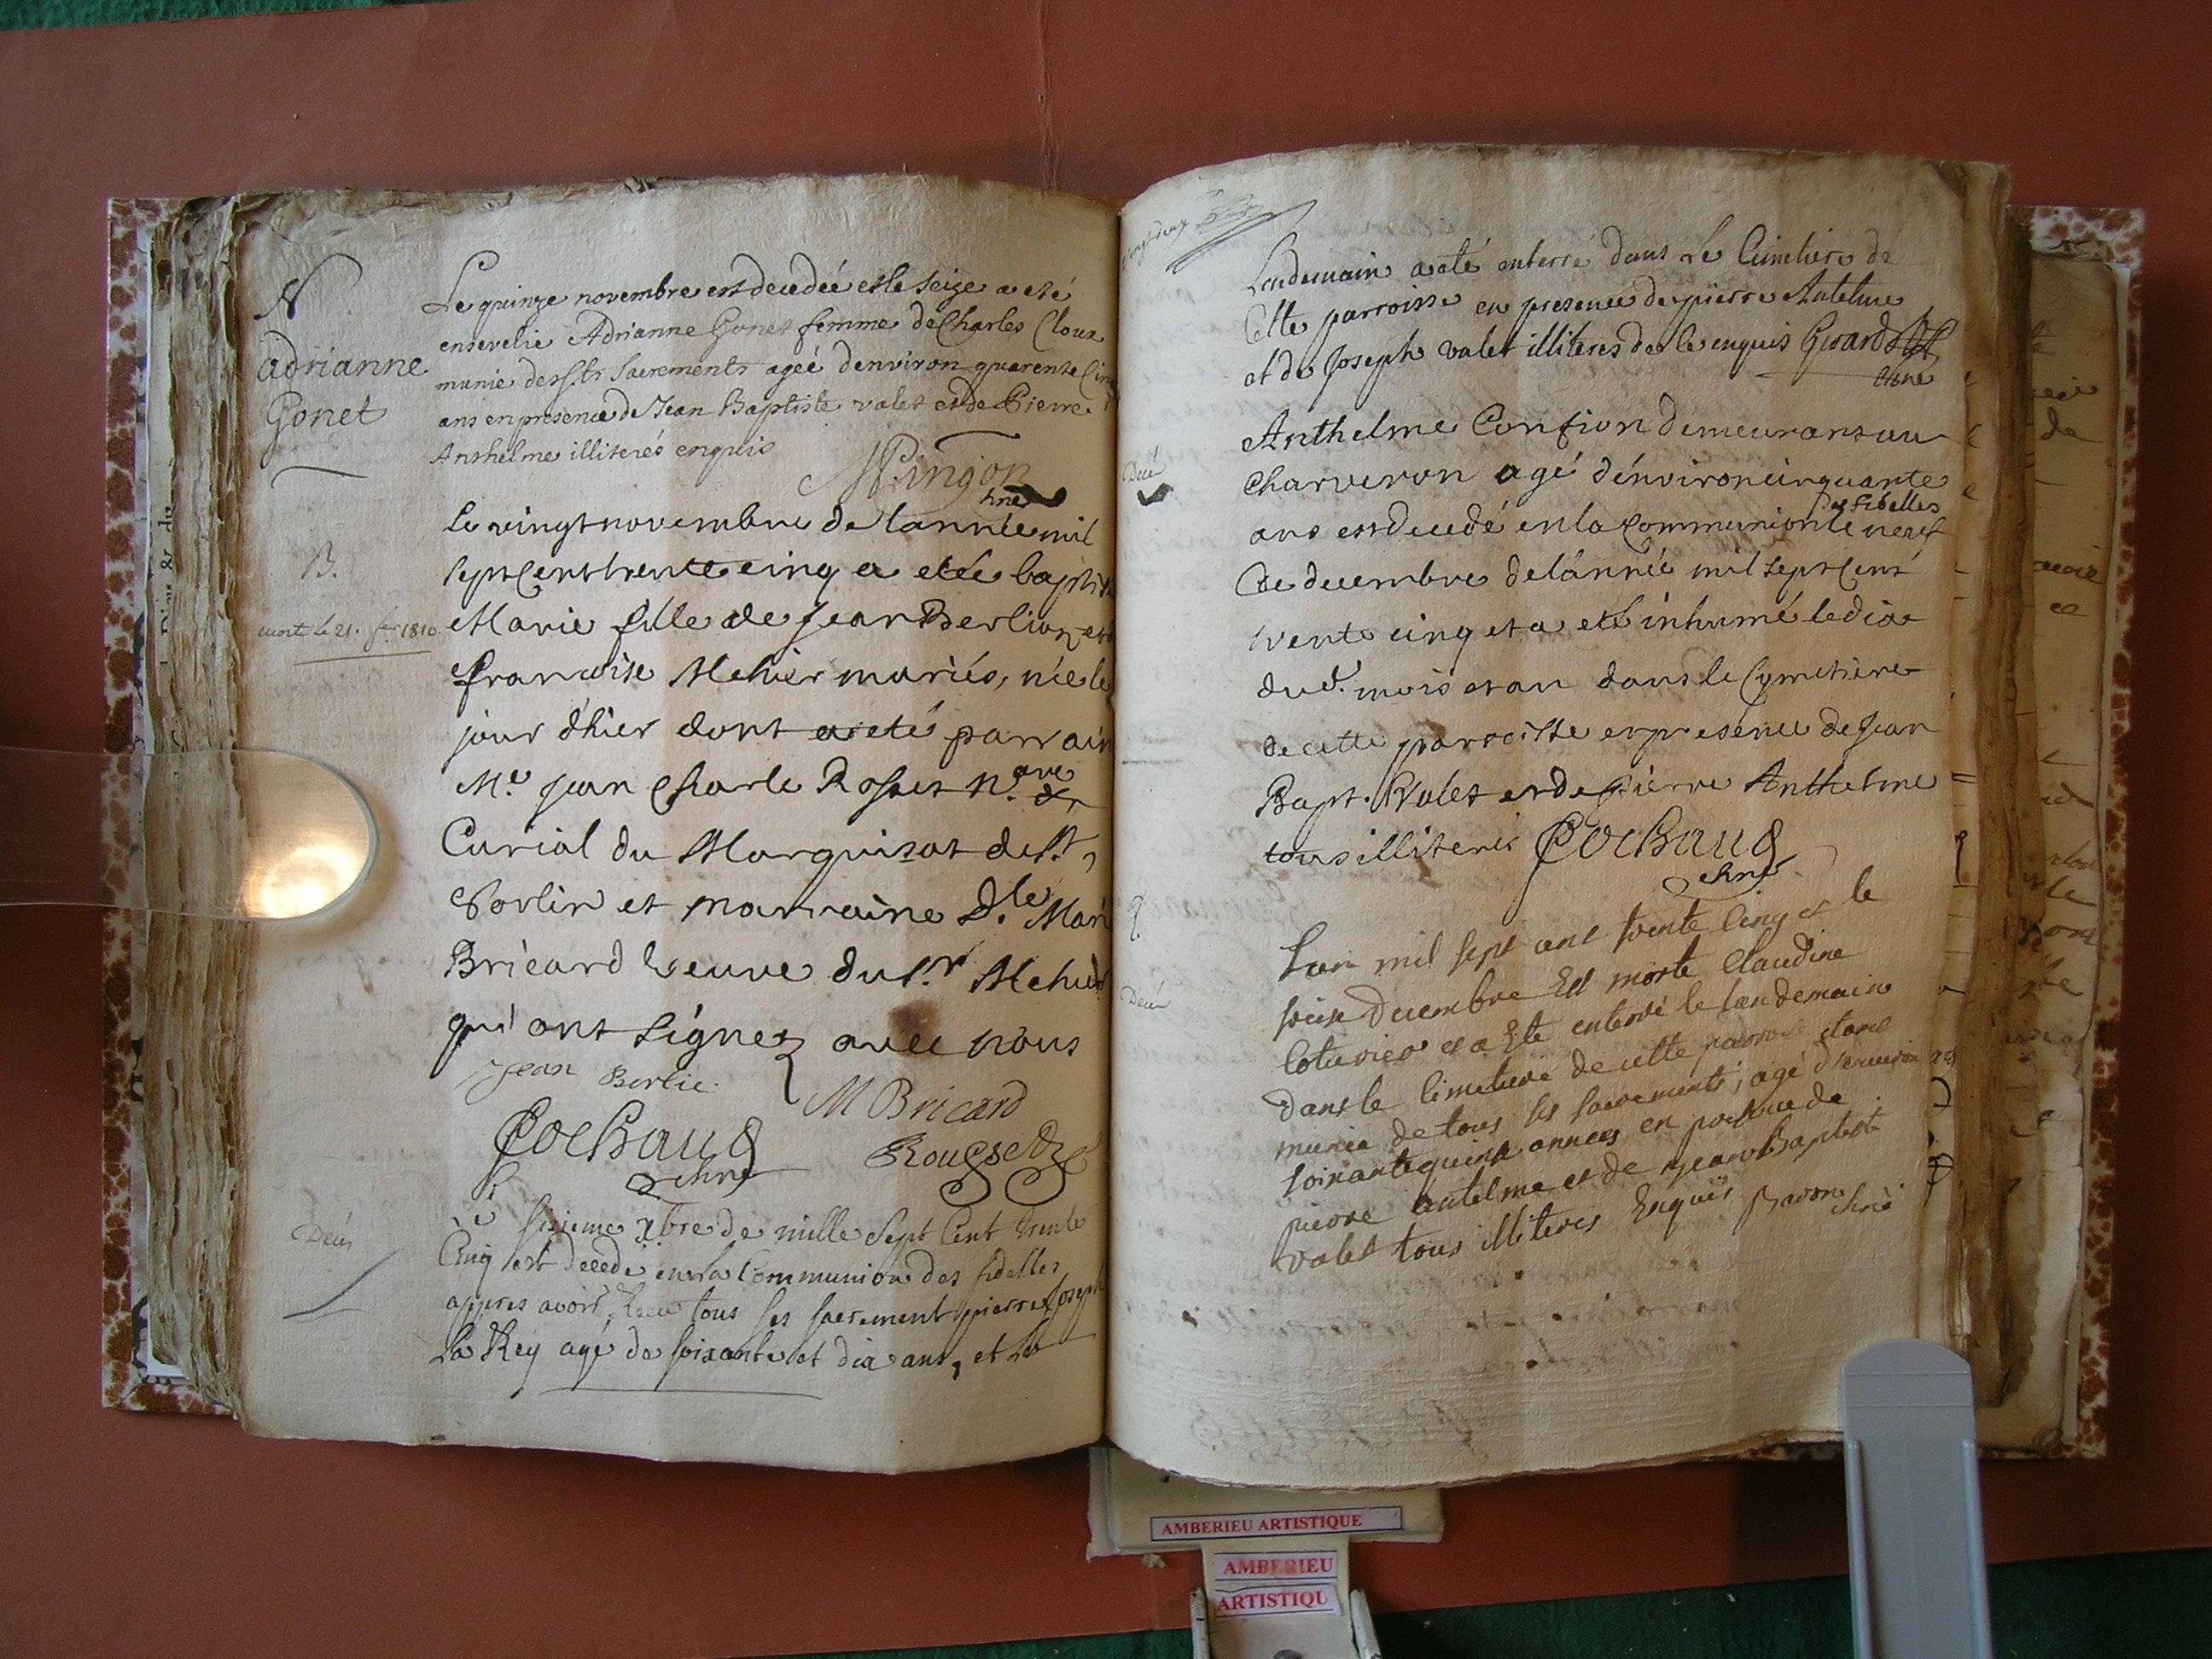 N
adrianne
Gonet
Le quinze novembre est decedée et le seize a eté
ensevelie Adrianne Gonet femme de Charles Cloux
munie des sts sacrements ageé denviron quarente Cin
ans en presence de Jean Baptiste valet et de Pierre
Anthelme illiterés enquis
MPingon
B.
mort le 21. 1810
le vingt novembre de lannée mil
sept cent trente cinq a etée baptisé
Marie fille de Jean Berlion et
francoise Mehier mariés, née le
jour d'hier dont a eté parrain
Me Jean Charle Rosset N.are &
Curial du Marquisat de St,
Sorlin et marraine D.le Mari
Bricard veuve du Sr Mehier
qui ont signez avec nous
Jean Berlie
M Bricard
Cochaud
Rousset
Decés
Le sixieme xbre de mille sept Cent trente
Cinq est decedé en la Communion des fidelles
appres avoir Receu tous ses sacrement pierre Joseph
La Rey agé de soixante et dix ans, et le
Lendemain a eté enterré dans le Cimetiere de
Cette parroisse en presence de pierre Antelme
et de Joseph valet illiteres de le enquis Girard
Decé
Anthelme Confion demeurant au
Charveron agé d'environ cinquante
des fidelles
ans est decedé en la Communion le neuf
de decembre de lánnée mil sept cent
trente cinq et a eté inhumé le dix
dud. mois et an dans le Cymetiere
de cette parroisse en presence de Jean
Bapt. Valet et de Pierre Anthelme
tous illiterés Cochaud
Decés
Lan mil sept cent trente cinq et le
seize Decembre Est morte Claudine
Coturier et a Eté enterré le landemain
dans le Cimetiere de cette paroisse etant
munie de tous ses sacrements, agé d'environ
soixante quinze annees en presence de
pierre antelme et de Jean Baptiste
valet tous illiteres Enquis Baron
AMBERIEU ARTISTIQUE
AMBERIEU
ARTISTIQU